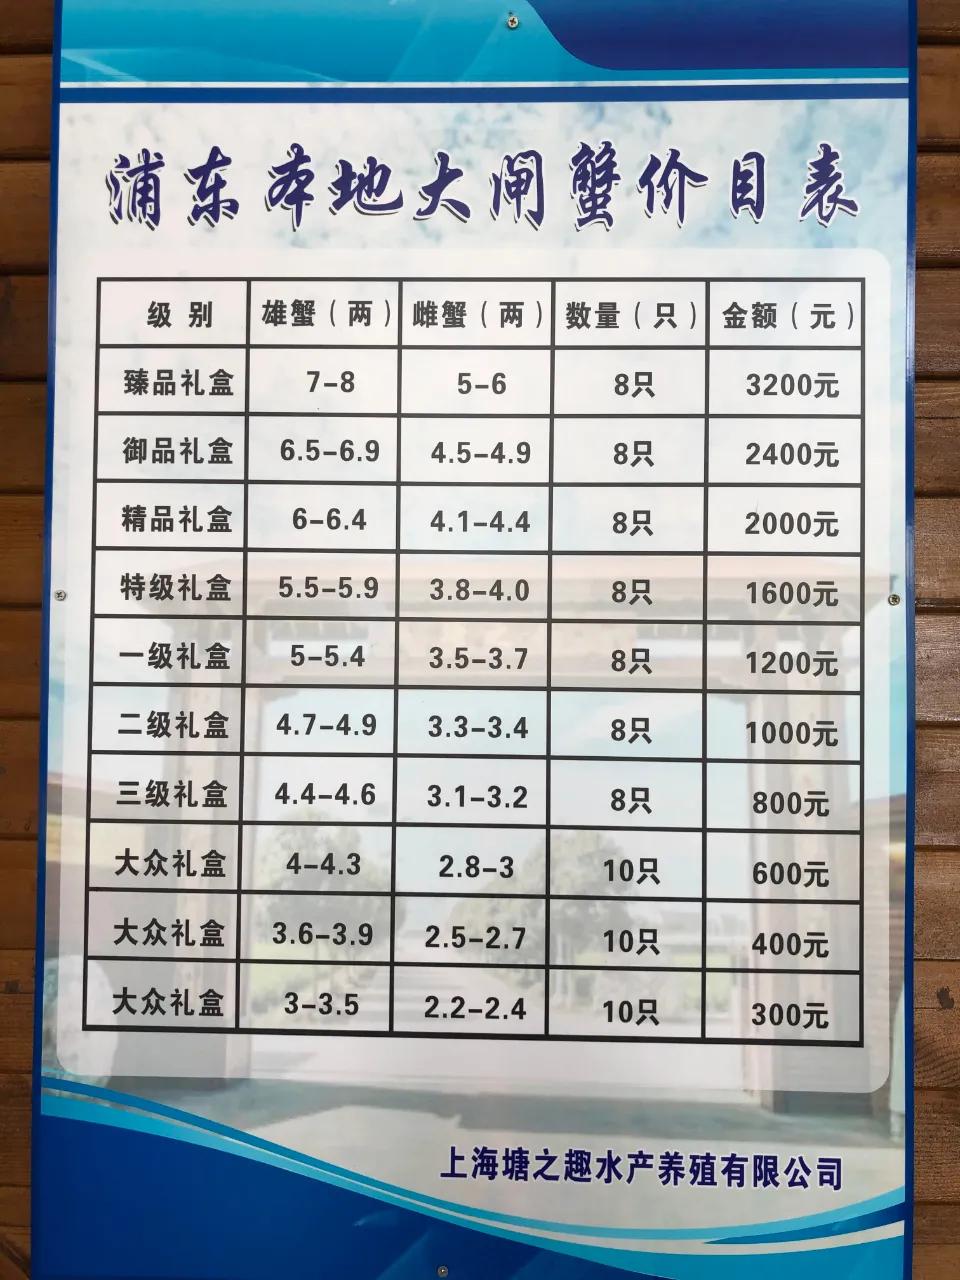 浦东本地大闸蟹价目表
级别 雄蟹（两） 雌蟹（两） 数量（只） 金额（元）
臻品礼盒 7-8 5-6 8只 3200元
御品礼盒 6.5-6.9 4.5-4.9 8只 2400元
精品礼盒 6-6.4 4.1-4.4 8只 2000元
特级礼盒 5.5-5.9 3.8-4.0 8只 1600元
一级礼盒 5-5.4 3.5-3.7 8只 1200元
二级礼盒 4.7-4.9 3.3-3.4 8只 1000元
三级礼盒 4.4-4.6 3.1-3.2 8只 800元
大众礼盒 4-4.3 2.8-3 10只 600元
大众礼盒 3.6-3.9 2.5-2.7 10只 400元
大众礼盒 3-3.5 2.2-2.4 10只 300元
上海塘之趣水产养殖有限公司